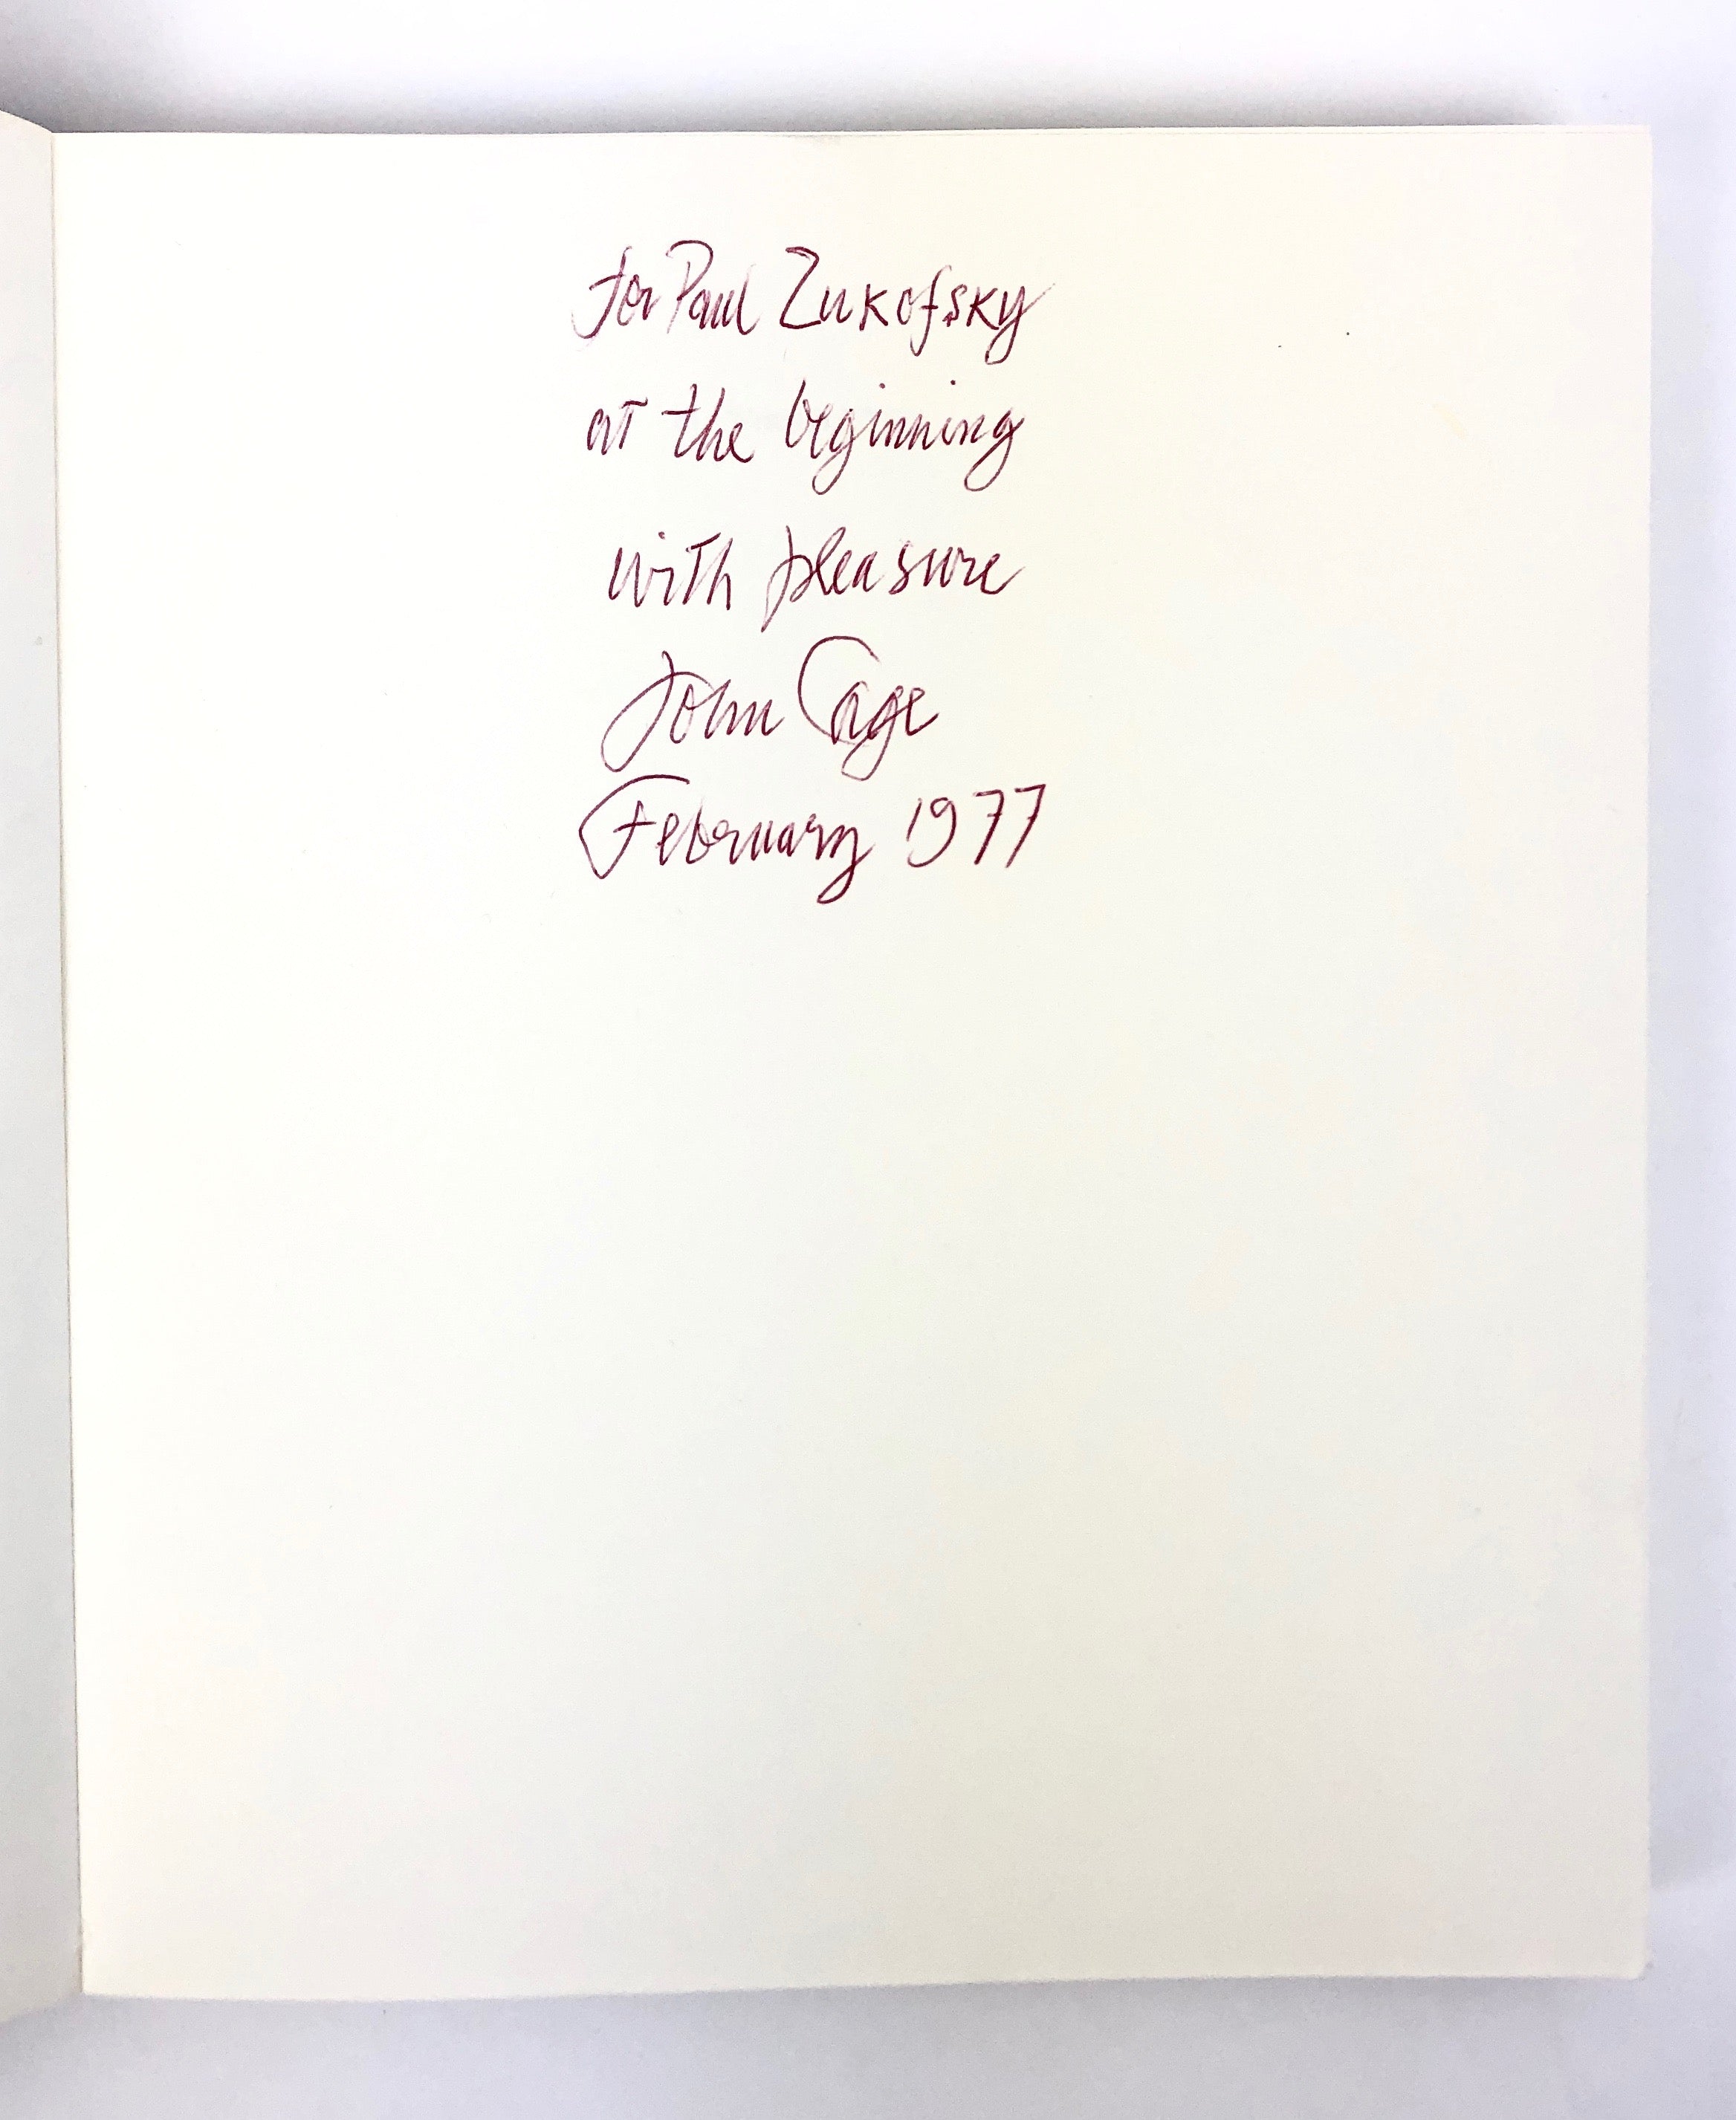 for Paul Zukofsky
at the beginning
with pleasure
John Cage
February 1977